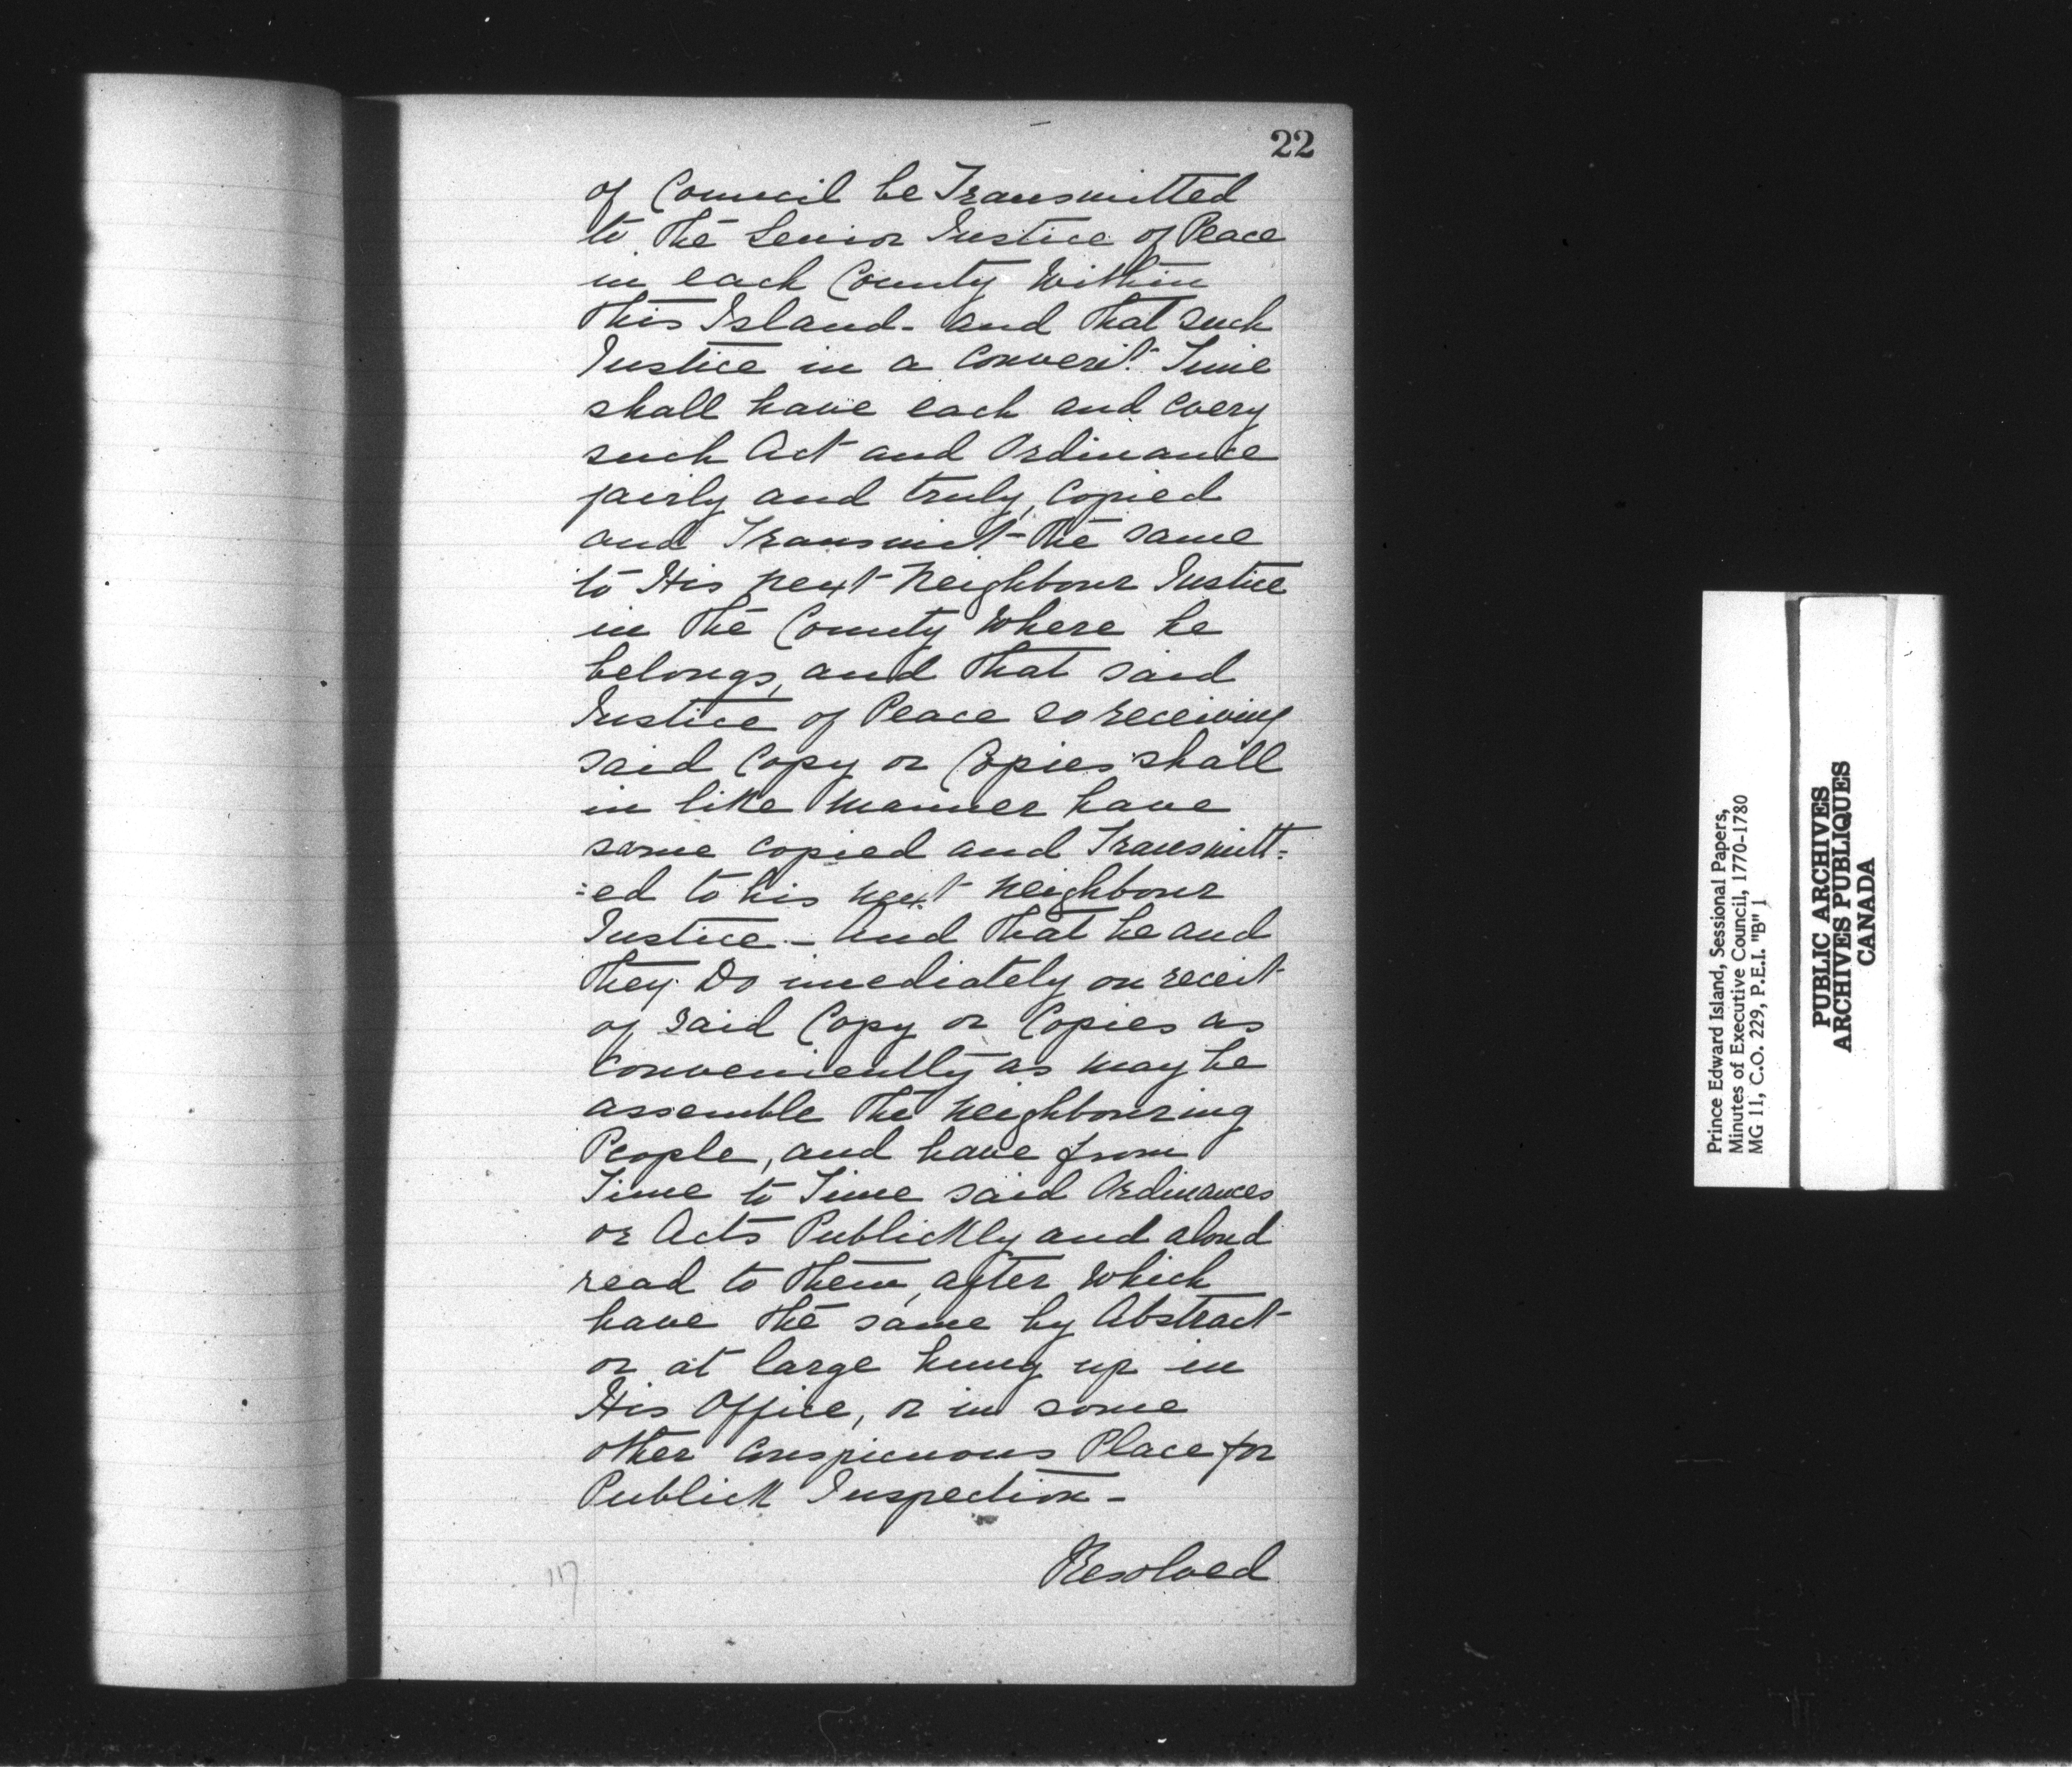 22
of Council be Transmitted
to the Senior Justice of Peace
in each County Within
this Island - and that such
Justice in a Convent. Time
shall have each and every
such Act and Ordinance
fairly and truly, Copied
and Transmit the same
to His next Neighbour Justice
in the County Where he
belongs, and that said
Justice of Peace so receiving
said Copy or Copies shall
in like Manner have
same copied and Transmitt=
=ed to his next Neighbour
Justice - And that he and
they Do imediately on receit
of said Copy or Copies as
conveniently as may be
assemble the Neighbouring
People, and have from
Time to Time said Ordinances
or Acts Publickly and aloud
read to them, after Which
have the same by Abstract
or at large hung up in
His Office, or in some
other Conspicuous Place for
Publick Inspection -
Resolved
117
Prince Edward Island, Sessional Papers,
Minutes of Executive Council, 1770-1780
MG 11, C.O. 229, P.E.I. "B" 1
PUBLIC ARCHIVES
ARCHIVES PUBLIQUES
CANADA